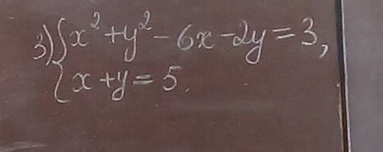 3) { x² + y² - 6x - 2y = 3,
x + y = 5.